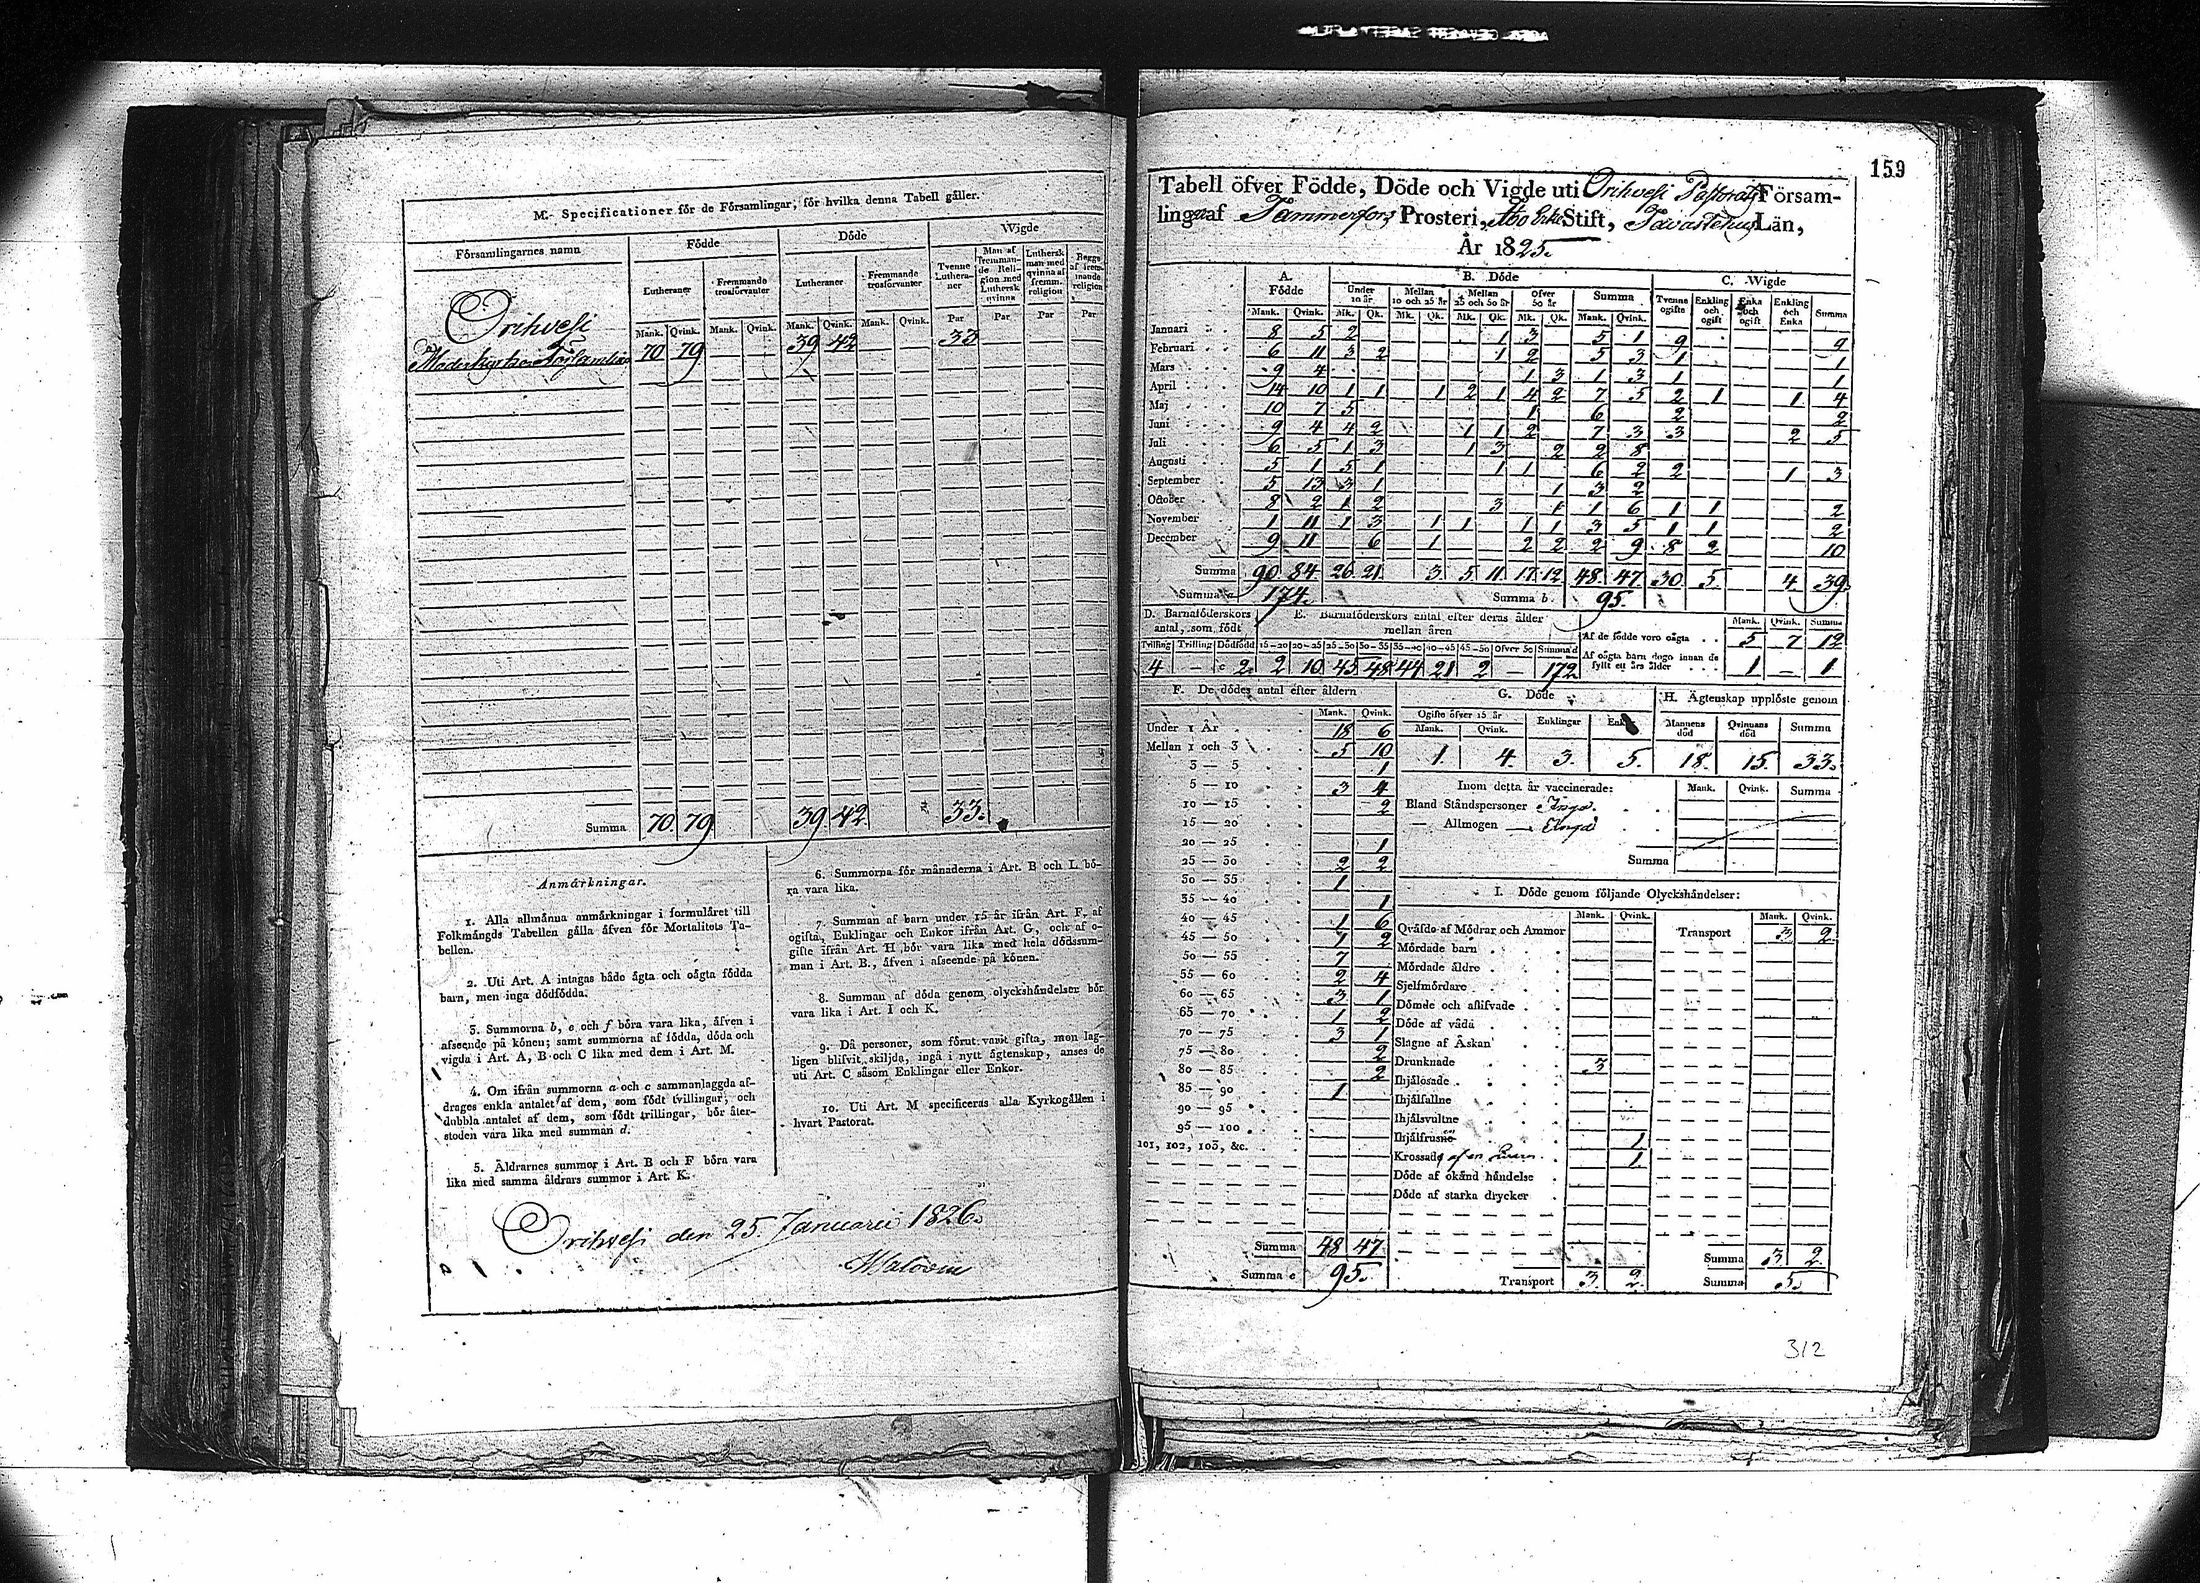 M. Specificationer för de Församlingar, för hvilka denna Tabell gäller.
Församlingarnes namn
Födde
Döde
Wigde
Lutheraner
Fremmande trosförvanter
Lutheraner
Fremmande trosförvanter
Tvenne Lutheraner
Man af fremmande Religion med Luthersk qvinna
Luthersk man med qvinna af fremm. religion
Begge af fremmande religion
Mank. Qvink. Mank. Qvink. Mank. Qvink. Mank. Qvink. Par Par Par Par
Orihvesi
Moderkyrko Församling 70 79 39 42 33
Summa 70 79 39 42 33.
Anmärkningar.
1. Alla allmänna anmärkningar i formuläret till
Folkmängds Tabellen gälla äfven för Mortalitets Ta-
bellen.
2. Uti Art. A intagas både ägta och oägta födda
barn, men inga dödfödda.
3. Summorna b, e och f böra vara lika, äfven i
afseende på könen; samt summorna af födda, döda och
vigda i Art. A, B och C lika med dem i Art. M.
4. Om ifrån summorna a och c sammanlaggda af-
drages enkla antalet af dem, som födt tvillingar, och
dubbla antalet af dem, som födt trillingar, bör åter-
stoden vara lika med summan d.
5. Åldrarnes summor i Art. B och F böra vara
lika med samma åldrars summor i Art. K.
6. Summorna för månaderna i Art. B och L bö-
ra vara lika.
7. Summan af barn under 15 år ifrån Art. F, af
ogifta, Enklingar och Enkor ifrån Art. G, och af o-
gifte ifrån Art. H bör vara lika med hela dödssum-
man i Art. B., äfven i afseende på könen.
8. Summan af döda genom olyckshändelser bör
vara lika i Art. I och K.
9. Då personer, som förut varit gifta, men lag-
ligen blifvit skiljda, ingå i nytt ägtenskap, anses de
uti Art. C såsom Enklingar eller Enkor.
10. Uti Art. M specificeras alla Kyrkogällen i
hvart Pastorat.
Orihvesi den 25. Januarii 1826.
159
Tabell öfver Födde, Döde och Vigde uti Orihvesi Pastorats Försam-
lingar af Tammerfors Prosteri, Åbo Erke Stift, Tavastehus Län,
År 1825.
A. Födde
B. Döde
C. Wigde
Under 10 år
Mellan 10 och 25 år
Mellan 25 och 50 år
Öfver 50 år
Summa
Tvenne ogifte
Enkling och ogift
Enka och ogift
Enkling och Enka
Summa
Mank. Qvink. Mk. Qk. Mk. Qk. Mk. Qk. Mk. Qk. Mank. Qvink.
Januari 8 5 2 1 3 5 1 9 9
Februari 6 11 3 2 1 2 5 3 1 1
Mars 9 4 1 3 1 3 1 1
April 14 10 1 1 1 2 1 4 2 7 5 2 1 1 4
Maj 10 7 5 1 6 2 2
Juni 9 4 4 2 1 1 2 7 3 3 2 5
Juli 6 5 1 3 1 3 2 2 8
Augusti 5 1 5 1 1 1 6 2 2 1 3
September 5 13 3 1 1 3 2
October 8 2 1 2 3 1 1 6 1 1 2
November 1 11 1 3 1 1 1 1 3 5 1 1 2
December 9 11 6 1 2 2 2 9 8 2 10
Summa 90 84 26 21 3 5 11 17 12 48 47 30 5 4 39.
Summa a 174. Summa b 95.
D. Barnaföderskors antal, som födt
E. Barnaföderskors antal efter deras ålder mellan åren
Mank. Qvink. Summa
Af de födde voro oägta 5 7 12
Af oägta barn dogo innan de fyllt ett års ålder 1 — 1
Tvilling Trilling Dödfödd 15—20 20—25 25—30 30—35 35—40 40—45 45—50 Öfver 50 Summa d
4 — c 2. 2 10 45 48 44 21 2 — 172
F. De dödes antal efter åldern
Mank. Qvink.
Under 1 År 18 6
Mellan 1 och 3 5 10
3 — 5 1
5 — 10 3 4
10 — 15 2
15 — 20
20 — 25 1
25 — 30 2 2
30 — 35 1
35 — 40 1
40 — 45 1 6
45 — 50 1 2
50 — 55 7
55 — 60 2 4
60 — 65 3 1
65 — 70 1 2
70 — 75 3 1
75 — 80 2
80 — 85 2
85 — 90 1
90 — 95
95 — 100
101, 102, 103, &c.
Summa 48 47
Summa e 95.
G. Döde
Ogifte öfver 15 år
Enklingar
Mank. Qvink.
1. 4. 3. 5.
H. Ägtenskap upplöste genom
Mannens död
Qvinnans död
Summa
18. 15. 33.
Inom detta år vaccinerade: Mank. Qvink. Summa
Bland Ståndspersoner Inga.
— Allmogen — Inga
Summa
I. Döde genom följande Olyckshändelser:
Mank. Qvink. Mank. Qvink.
Qväfde af Mödrar och Ammor
Transport 3 2
Mördade barn
Mördade äldre
Sjelfmördare
Dömde och aflifvade
Döde af våda
Slagne af Åskan
Drunknade 3
Ihjälosade
Ihjälfallne
Ihjälsvultne
Ihjälfrusne 1
Krossade af en qvarn 1
Döde af okänd händelse
Döde af starka drycker
Summa 3 2
Transport 3. 2. Summa 5.
312